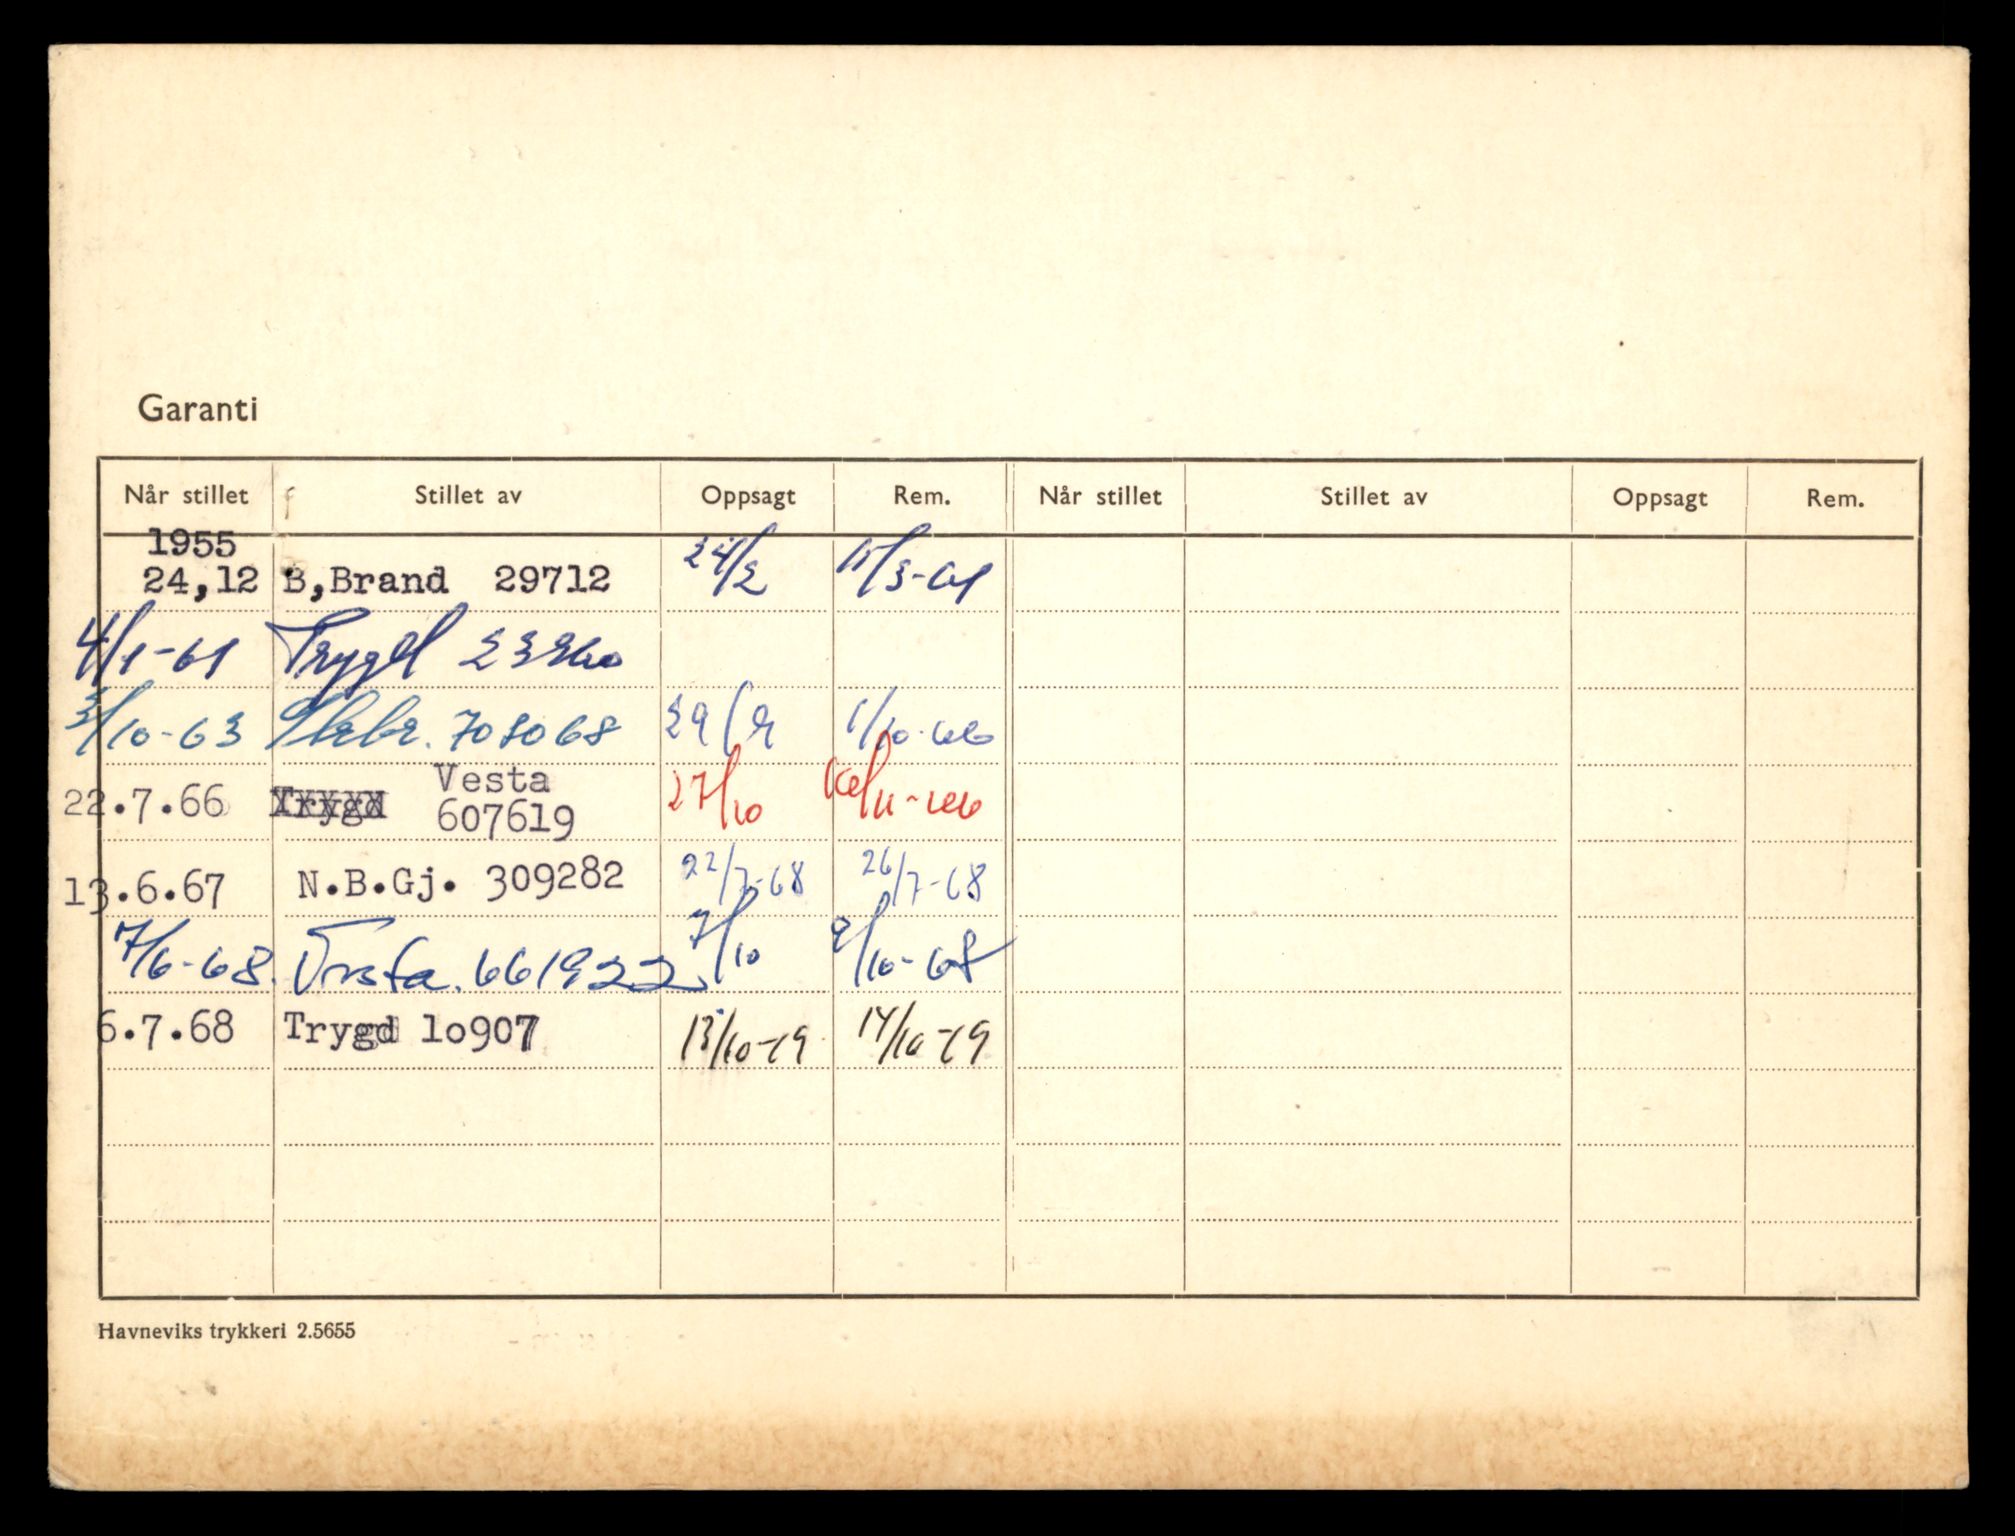 Garanti
Når stillet Stillet av Oppsagt Rem. Når stillet Stillet av Oppsagt Rem.
1955
24,12 B,Brand 29712 24/2 11/3-61
4/1-61 Trygd
3/10-63 708068 29/9 1/10-66
Vesta
22.7.66 Trygd 607619 27/10 /11-66
13.6.67 N.B.Gj. 309282 22/7-68 26/7-68
7/6-68. Vesta. 661922 7/10 9/10-68
6.7.68 Trygd 1o907 13/10-69 14/10-69
Havneviks trykkeri 2.5655